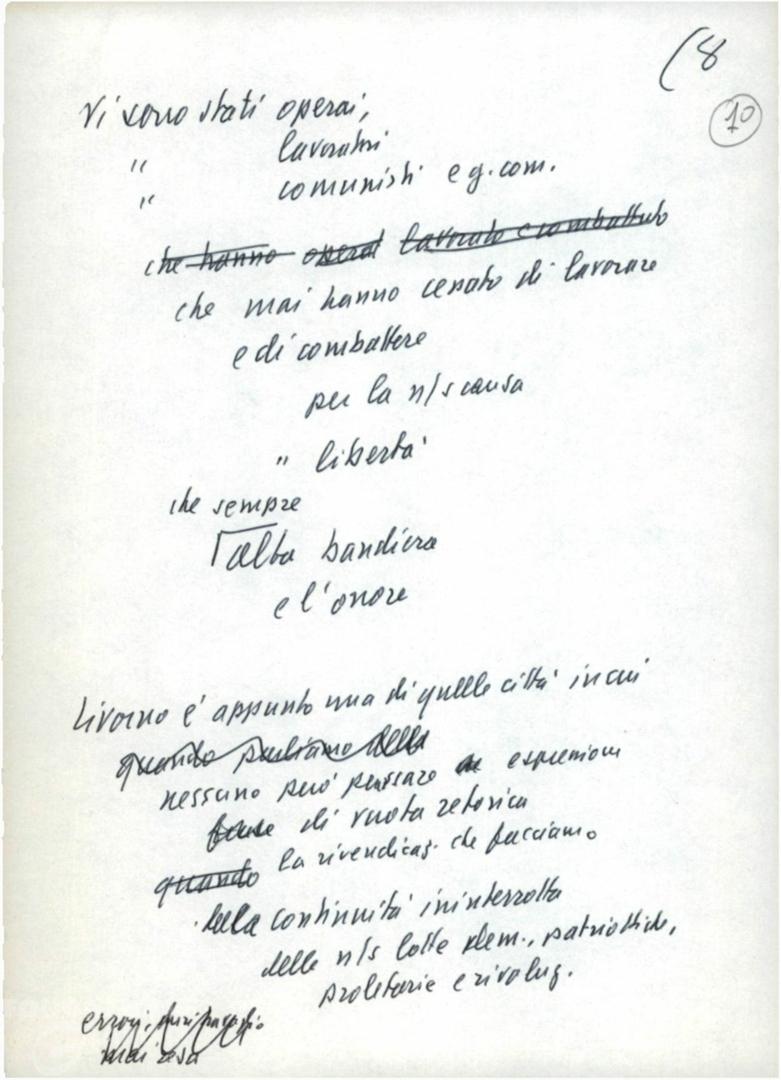 (8
10
Vi sono stati operai,
" lavoratori
" comunisti e g. com.
che hanno operai lavorato e combattuto
che mai hanno cessato di lavorare
e di combattere
per la n/s causa
" libertà
che sempre
alta bandiera
e l'onore
Livorno è appunto una di quelle città in cui
quando parliamo della
nessuno può pensare espressioni
di vuota retorica
quando la rivendicaz. che facciamo
della continuità ininterrotta
delle n/s lotte dem., patriottiche,
proletarie e rivoluz.
errori,
mai resa